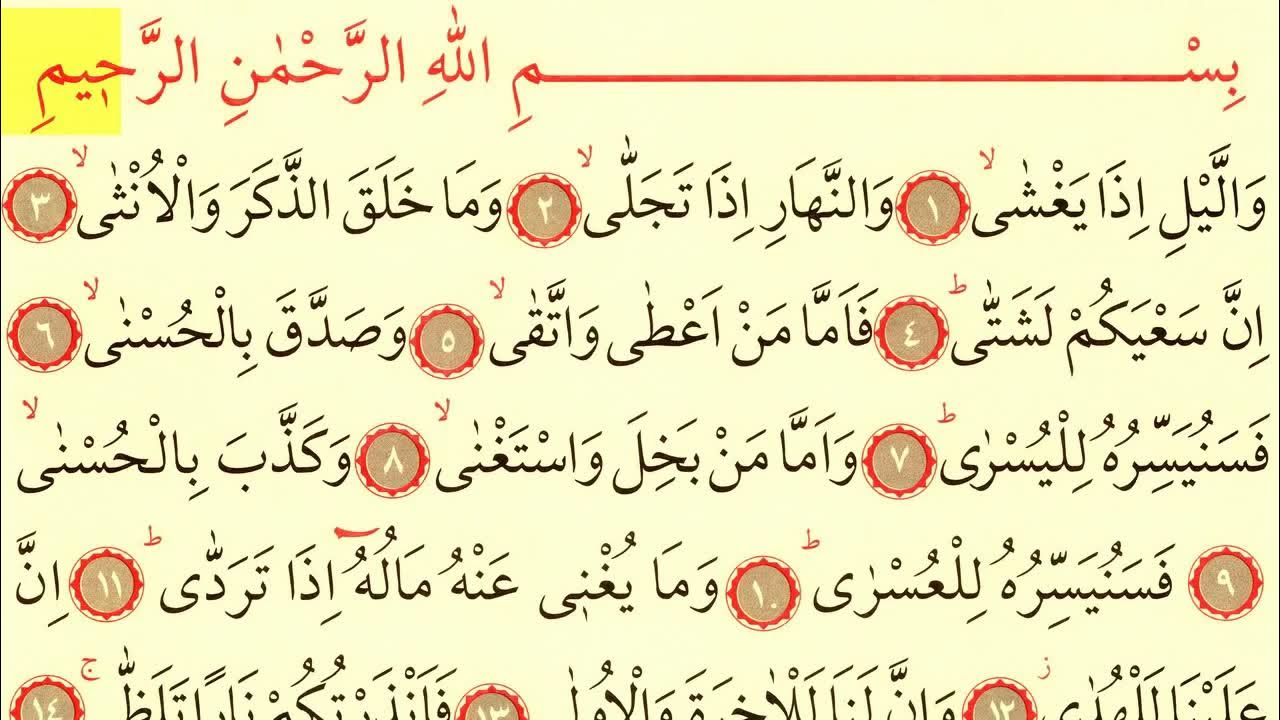 بِسْـــــــــــــمِ اللّٰهِ الرَّحْمٰنِ الرَّحٖيمِ
وَالَّيْلِ اِذَا يَغْشٰىۙ ١ وَالنَّهَارِ اِذَا تَجَلّٰىۙ ٢ وَمَا خَلَقَ الذَّكَرَ وَالْاُنْثٰىۙ ٣
اِنَّ سَعْيَكُمْ لَشَتّٰىۜ ٤ فَاَمَّا مَنْ اَعْطٰى وَاتَّقٰىۙ ٥ وَصَدَّقَ بِالْحُسْنٰىۙ ٦
فَسَنُيَسِّرُهُ لِلْيُسْرٰىۜ ٧ وَاَمَّا مَنْ بَخِلَ وَاسْتَغْنٰىۙ ٨ وَكَذَّبَ بِالْحُسْنٰىۙ
٩ فَسَنُيَسِّرُهُ لِلْعُسْرٰىۜ ١٠ وَمَا يُغْنٖى عَنْهُ مَالُهُٓ اِذَا تَرَدّٰىۜ ١١ اِنَّ
عَلَيْنَا لَلْهُدٰىؗ ١٢ وَاِنَّ لَنَا لَلْاٰخِرَةَ وَالْاُولٰى ١٣ فَاَنْذَرْتُكُمْ نَارًا تَلَظّٰىۚ ١٤